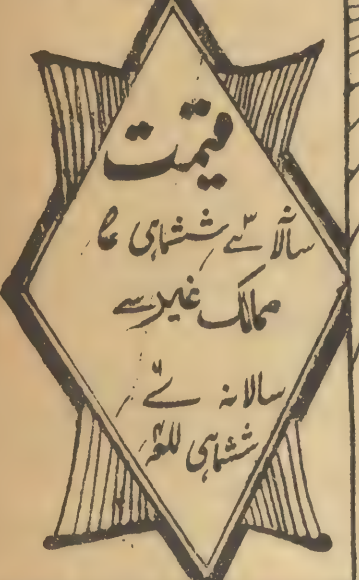 قیمت
سالانہ ششماہی
ممالک غیر سے
سالانہ
ششماہی للعہ